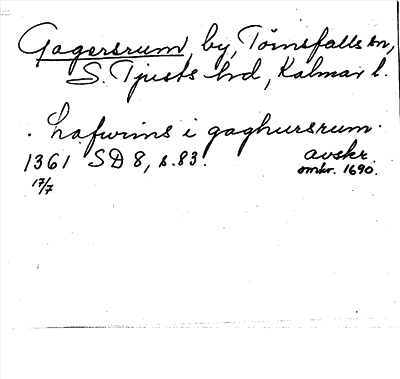 Gagersrum, by, Törnsfalls sn,
S. Tjusts hd, Kalmar l.
. hafwims i gaghursrum.
1361 SD 8, s. 83. avskr.
17/7 omkr. 1690.